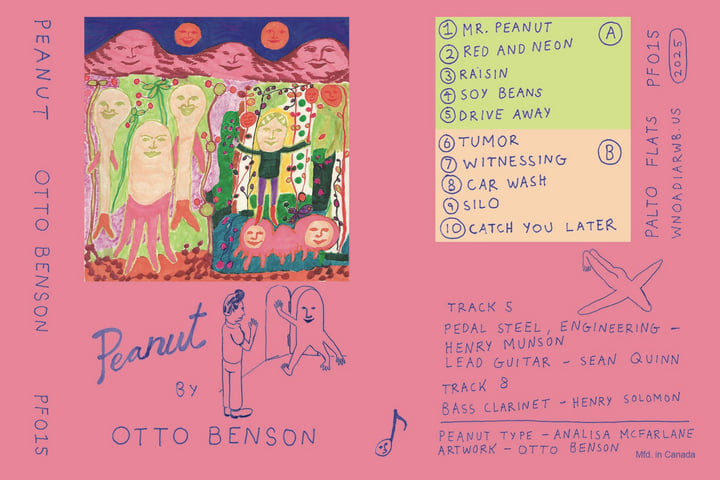 PEANUT OTTO BENSON PF015
Peanut
BY
OTTO BENSON
① MR. PEANUT
② RED AND NEON
③ RAISIN
④ SOY BEANS
⑤ DRIVE AWAY
A
⑥ TUMOR
⑦ WITNESSING
⑧ CAR WASH
⑨ SILO
⑩ CATCH YOU LATER
B
PALTO FLATS PF015
WNOADIARWB.US 2025
TRACK 5
PEDAL STEEL, ENGINEERING -
HENRY MUNSON
LEAD GUITAR - SEAN QUINN
TRACK 8
BASS CLARINET - HENRY SOLOMON
PEANUT TYPE - ANALISA MCFARLANE
ARTWORK - OTTO BENSON
Mfd. in Canada